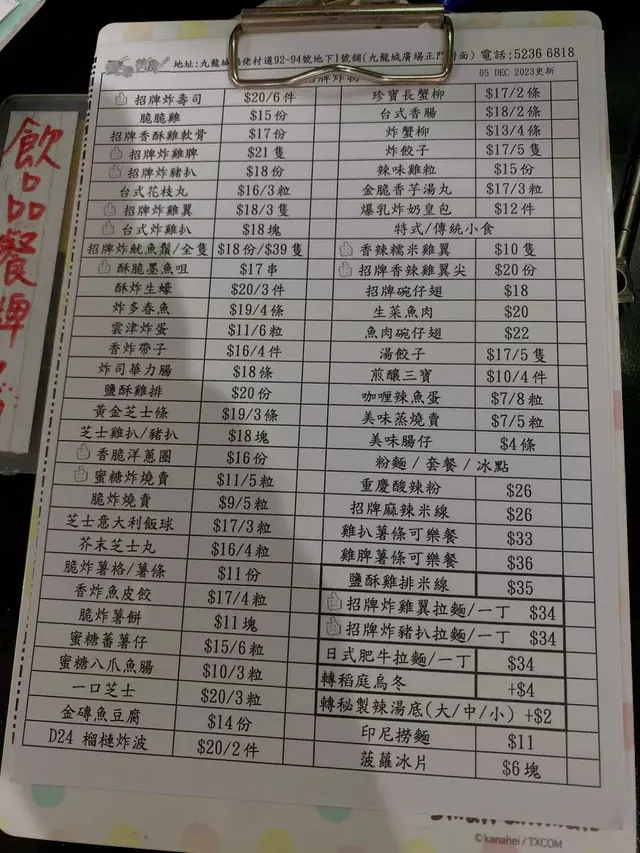 地址:九龍城侯王道92-94號地下1號舖(九龍城廣場正門對面) 電話:5236 6818
05 DEC 2023更新
招牌炸物
招牌炸壽司 $20/6件
脆脆雞 $15份
招牌香酥雞軟骨 $17份
招牌炸雞脾 $21隻
招牌炸豬扒 $18份
台式花枝丸 $16/3粒
招牌炸雞翼 $18/3隻
台式炸雞扒 $18塊
招牌炸魷魚鬚/全隻 $18份/$39隻
酥脆墨魚咀 $17串
酥炸生蠔 $20/3件
炸多春魚 $19/4條
雲津炸蛋 $11/6粒
香炸帶子 $16/4件
炸司華力腸 $18條
鹽酥雞排 $20份
黃金芝士條 $19/3條
芝士雞扒/豬扒 $18塊
香脆洋蔥圈 $16份
蜜糖炸燒賣 $11/5粒
脆炸燒賣 $9/5粒
芝士意大利飯球 $17/3粒
芥末芝士丸 $16/4粒
脆炸薯格/薯條 $11份
香炸魚皮餃 $17/4粒
脆炸薯餅 $11塊
蜜糖蕃薯仔 $15/6粒
蜜糖八爪魚腸 $10/3粒
一口芝士 $20/3粒
金磚魚豆腐 $14份
D24 榴槤炸波 $20/2件
珍寶長蟹柳 $17/2條
台式香腸 $18/2條
炸蟹柳 $13/4條
炸餃子 $17/5隻
辣味雞粒 $15份
金脆香芋湯丸 $17/3粒
爆乳炸奶皇包 $12件
特式/傳統小食
香辣糯米雞翼 $10隻
招牌香辣雞翼尖 $20份
招牌碗仔翅 $18
生菜魚肉 $20
魚肉碗仔翅 $22
湯餃子 $17/5隻
煎釀三寶 $10/4件
咖喱辣魚蛋 $7/8粒
美味蒸燒賣 $7/5粒
美味腸仔 $4條
粉麵/套餐/冰點
重慶酸辣粉 $26
招牌麻辣米線 $26
雞扒薯條可樂餐 $33
雞脾薯條可樂餐 $36
鹽酥雞排米線 $35
招牌炸雞翼拉麵/一丁 $34
招牌炸豬扒拉麵/一丁 $34
日式肥牛拉麵/一丁 $34
轉稻庭烏冬 +$4
轉秘製辣湯底(大/中/小) +$2
印尼撈麵 $11
菠蘿冰片 $6塊
飲品餐牌
©kanahei/TXCOM